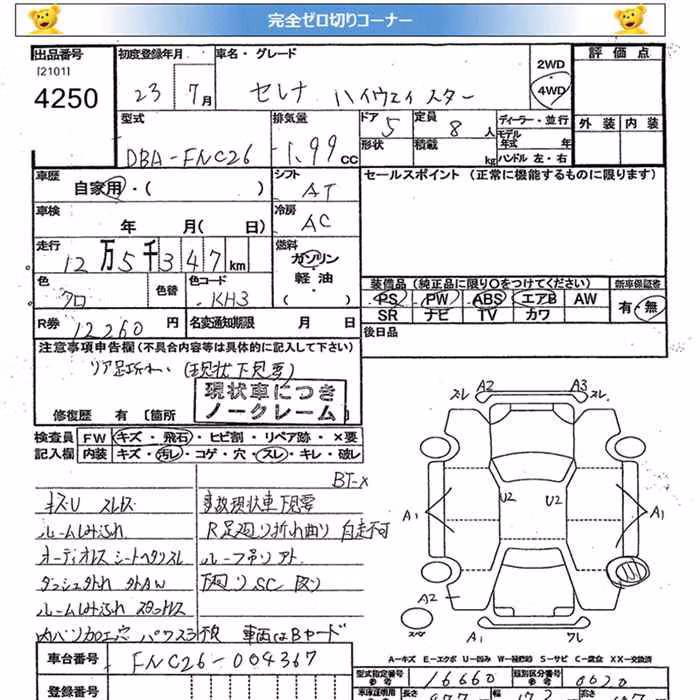 完全ゼロ切りコーナー
出品番号
[2101]
4250
初度登録年月
23 7月
車名・グレード
セレナ ハイウェイスター
2WD
4WD
評価点
外装 内装
型式
DBA-FNC26
排気量
1.99 CC
ドア 5
形状
定員 8 人
積載 kg
ディーラー・並行
モデル年式 年
ハンドル 左・右
車歴
自家用・( )
シフト
AT
セールスポイント (正常に機能するものに限ります)
車検
年 月( 日)
冷房
AC
走行
12万5千347km
燃料
ガソリン
軽油
( )
色
クロ
色替
色コード
KH3
装備品 (純正品に限り○をつけてください)
PS PW ABS エアB AW
SR ナビ TV カワ
新車保証書
有・無
R券 12260 円
名変通知期限 月 日
後日品
注意事項申告欄(不具合内容等は具体的に記入して下さい)
リア足折れ (現状下見要)
現状車につき
ノークレーム
修復歴 有 〔箇所
検査員
記入欄
FW キズ・飛石・ヒビ割・リペア跡・×要
内装 キズ・汚レ・コゲ・穴・スレ・キレ・破レ
BT-X
キズU スレ
事故現状車下見要
ルームしみ
R足廻り折れ曲り 自走不可
オーディオレス シートヘタリスレ
ルーフ吊リアト
ダッシュ 外AW
下廻りSC 因り
ルームしみ
車両はBヤード
スレ A2 A3 スレ
U2 U2
A1 A1
A2
A1 ワレ
A=キズ E=エクボ U=凹み W=補修跡 S=サビ C=腐食 XX=交換済
車台番号
FNC26-004367
型式指定番号
16660
類別区分番号
0020
登録番号